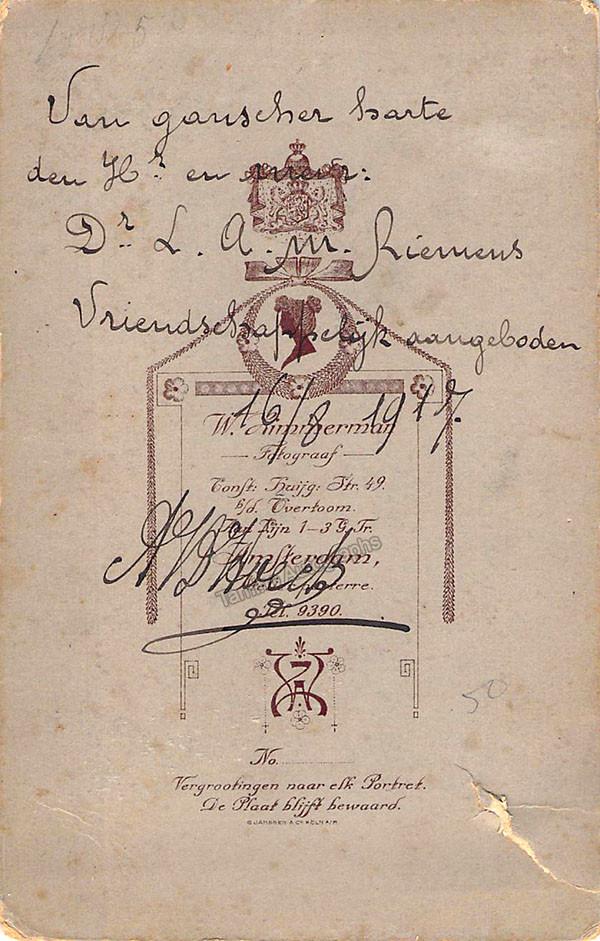 Van ganscher harte
den Hr en mevr:
Dr L. A. M. Riemens
Vriendschappelijk aangeboden
16/8 1917.
W. Zimmerman
Fotograaf
Const: Huijg: Str. 49.
h/d. Overtoom.
1-3 G. Tr.
Amsterdam,
Tel. 9390.
Tamino Autographs
50
No.
Vergrootingen naar elk Portret.
De Plaat blijft bewaard.